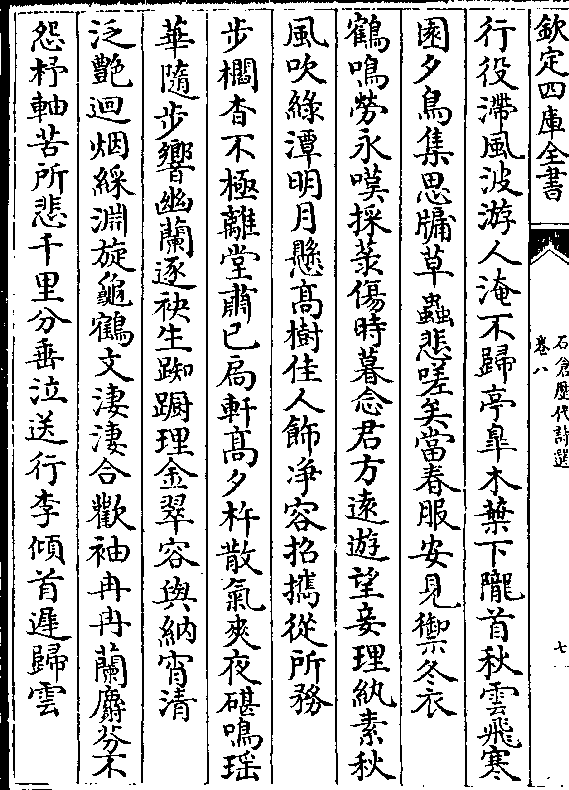 欽定四庫全書
石倉歷代詩選
卷八
七
行役滯風波游人淹不歸亭臯木葉下隴首秋雲飛寒
園夕鳥集思牖草蟲悲嗟矣當春服安見禦冬衣
鶴鳴勞永嘆採菉傷時暮念君方遠遊望妾理紈素秋
風吹綠潭明月懸高樹佳人飾凈容招攜從所務
步櫩杳不極離堂肅已扃軒高夕杵散氣爽夜碪鳴瑶
華隨步響幽蘭逐袂生踟躕理金翠容與納宵清
泛艷迴烟綵淵旋龜鶴文淒淒合歡袖冉冉蘭麝芬不
怨杼軸苦所悲千里分垂泣送行李傾首遲歸雲